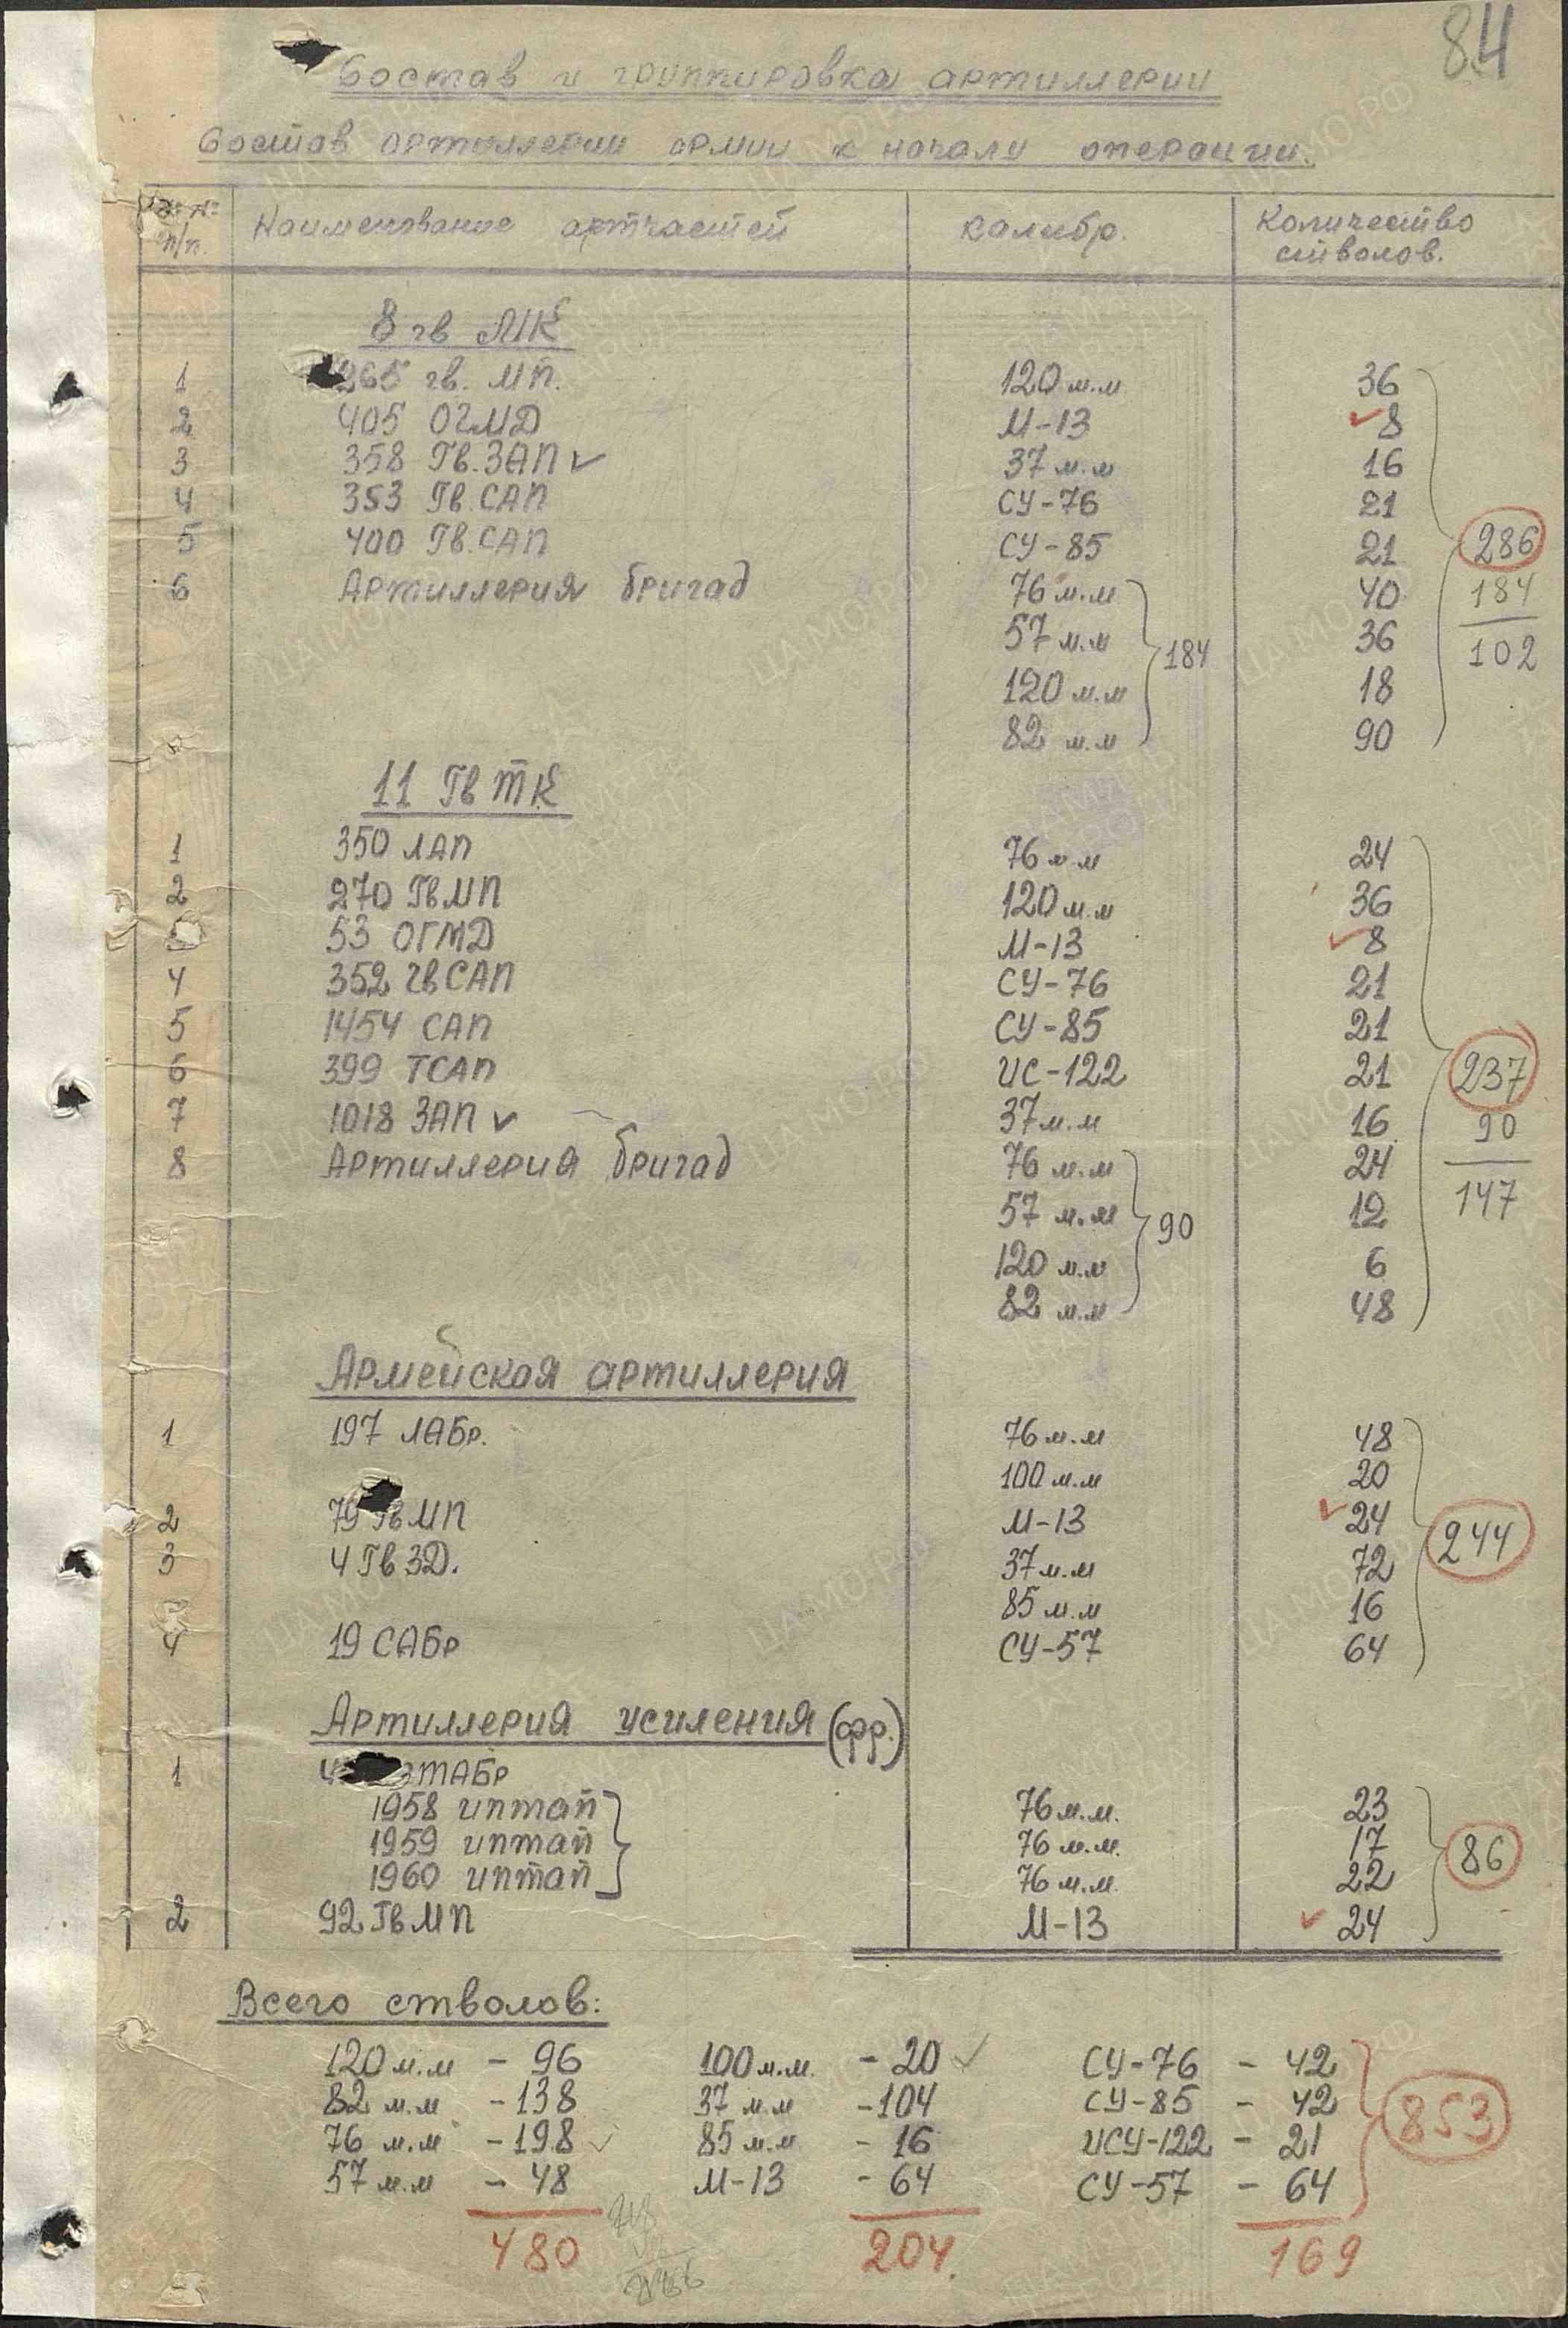 84
Состав и группировка артиллерии
Состав артиллерии армии к началу операции.
№ №
п/п. Наименование артчастей Калибр. Количество
стволов.
8 гв МК
1 265 гв. МП. 120 м.м 36
2 405 ОГМД М-13 8
3 358 Гв. ЗАП 37 м.м 16
4 353 Гв. САП СУ-76 21
5 400 Гв. САП СУ-85 21 286
6 Артиллерия бригад 76 м.м 40 184
57 м.м 184 36 102
120 м.м 18
82 м.м 90
11 Гв ТК
1 350 ЛАП 76 м.м 24
2 270 Гв МП 120 м.м 36
53 ОГМД М-13 8
4 352 гв САП СУ-76 21
5 1454 САП СУ-85 21
6 399 ТСАП ИС-122 21 237
7 1018 ЗАП 37 м.м 16 90
8 Артиллерия бригад 76 м.м 24 147
57 м.м 90 12
120 м.м 6
82 м.м 48
Армейская артиллерия
1 197 ЛАБр. 76 м.м 48
100 м.м 20
2 79 Гв МП М-13 24 244
3 4 Гв ЗД. 37 м.м 72
85 м.м 16
4 19 САБр СУ-57 64
Артиллерия усиления (фр.)
1 4 ПТАБр
1958 иптап 76 м.м. 23
1959 иптап 76 м.м. 17 86
1960 иптап 76 м.м. 22
2 92 Гв МП М-13 24
Всего стволов:
120 м.м - 96 100 м.м. - 20 СУ-76 - 42
82 м.м - 138 37 м.м - 104 СУ-85 - 42 853
76 м.м - 198 85 м.м - 16 ИСУ-122 - 21
57 м.м - 48 М-13 - 64 СУ-57 - 64
480 204. 169